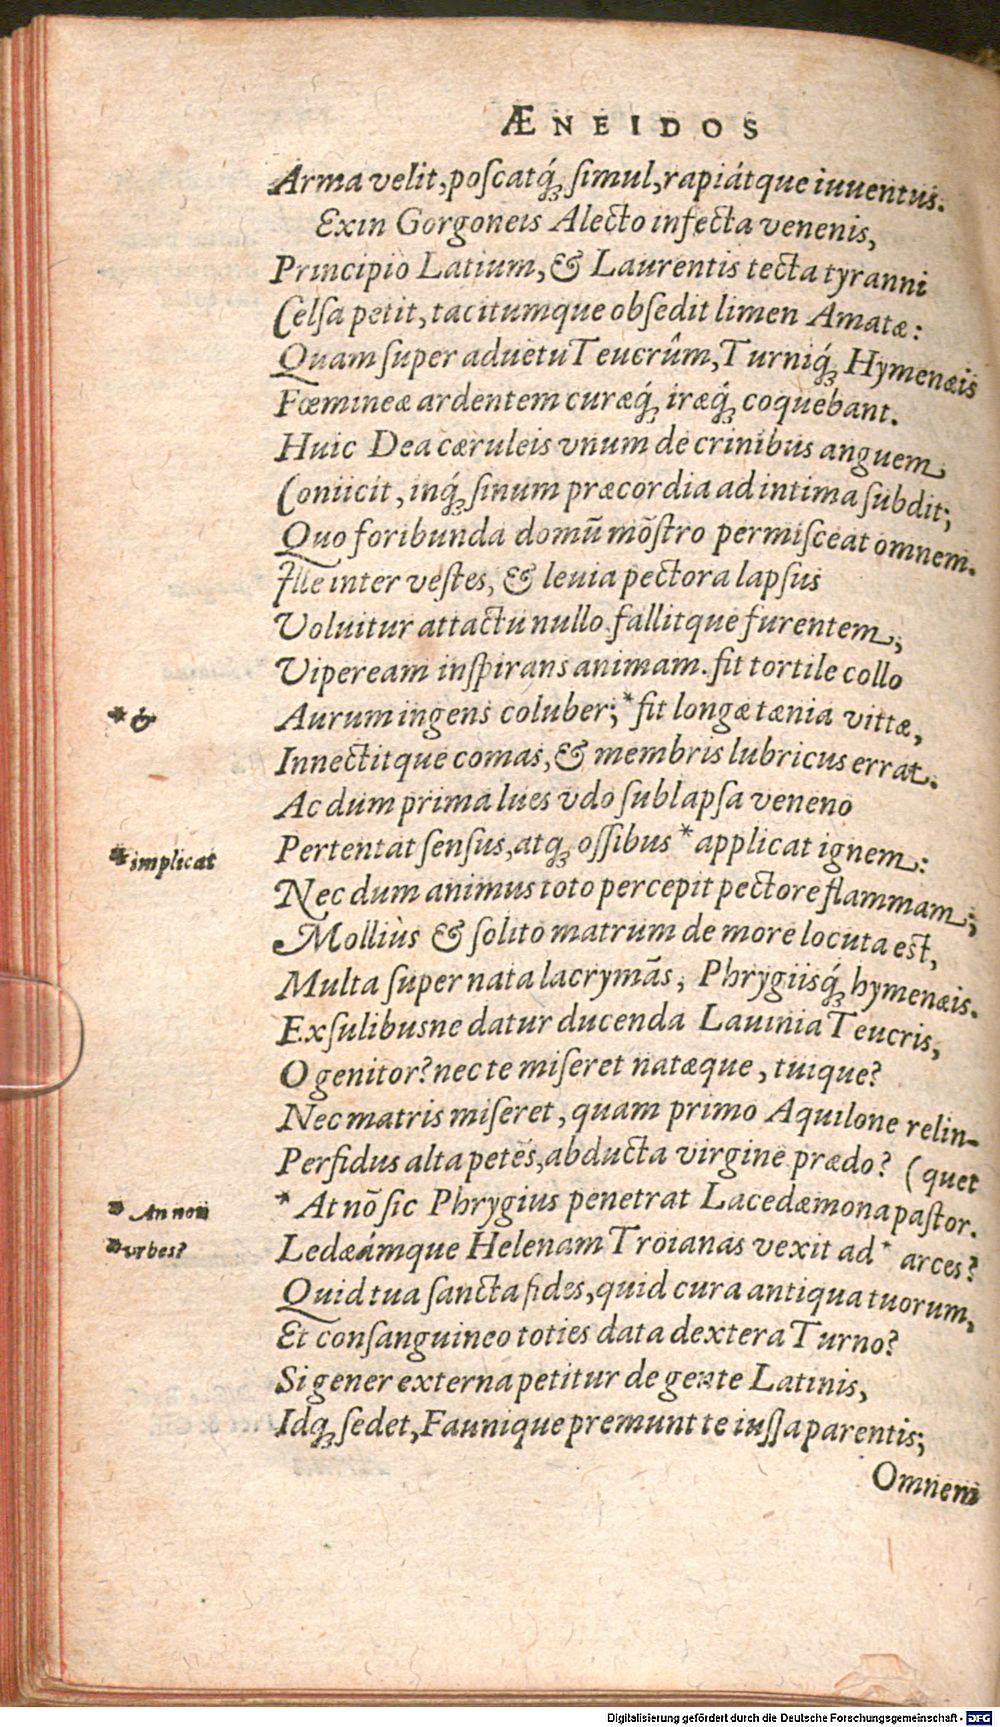 ÆNEIDOS
Arma velit, poſcatq́; ſimul, rapiátque iuuentus.
Exin Gorgoneis Alecto infecta venenis,
Principio Latium, & Laurentis tecta tyranni
Celſa petit, tacitumque obſedit limen Amatæ:
Quam ſuper aduẽtu Teucrûm, Turniq́; Hymenæis
Fœmineæ ardentem curæq́; iræq́; coquebant.
Huic Dea cæruleis vnum de crinibus anguem
Coniicit, inq́; ſinum præcordia ad intima ſubdit;
Quo foribunda domũ mõſtro permiſceat omnem.
Ille inter veſtes, & leuia pectora lapſus
Voluitur attactu nullo. fallitque furentem,
Vipeream inſpirans animam. fit tortile collo
* & Aurum ingens coluber; * fit longæ tænia vittæ,
Innectitque comas, & membris lubricus errat.
Ac dum prima lues vdo ſublapſa veneno
* implicat Pertentat ſenſus, atq; oſſibus * applicat ignem:
Nec dum animus toto percepit pectore flammam;
Molliùs & ſolito matrum de more locuta eſt,
Multa ſuper nata lacrymãs, Phrygiisq́; hymenæis.
Exſulibusne datur ducenda Lauinia Teucris,
O genitor? nec te miſeret natæque, tuique?
Nec matris miſeret, quam primo Aquilone relin-
Perfidus alta petẽs, abducta virgine prædo? (quet
* An non * At nõ ſic Phrygius penetrat Lacedæmona paſtor.
* vrbes? Ledæámque Helenam Troianas vexit ad * arces?
Quid tua ſancta fides, quid cura antiqua tuorum,
Et conſanguineo toties data dextera Turno?
Si gener externa petitur de gente Latinis,
Idq; ſedet, Faunique premunt te iuſſa parentis;
Omnem
Digitalisierung gefördert durch die Deutsche Forschungsgemeinschaft - DFG